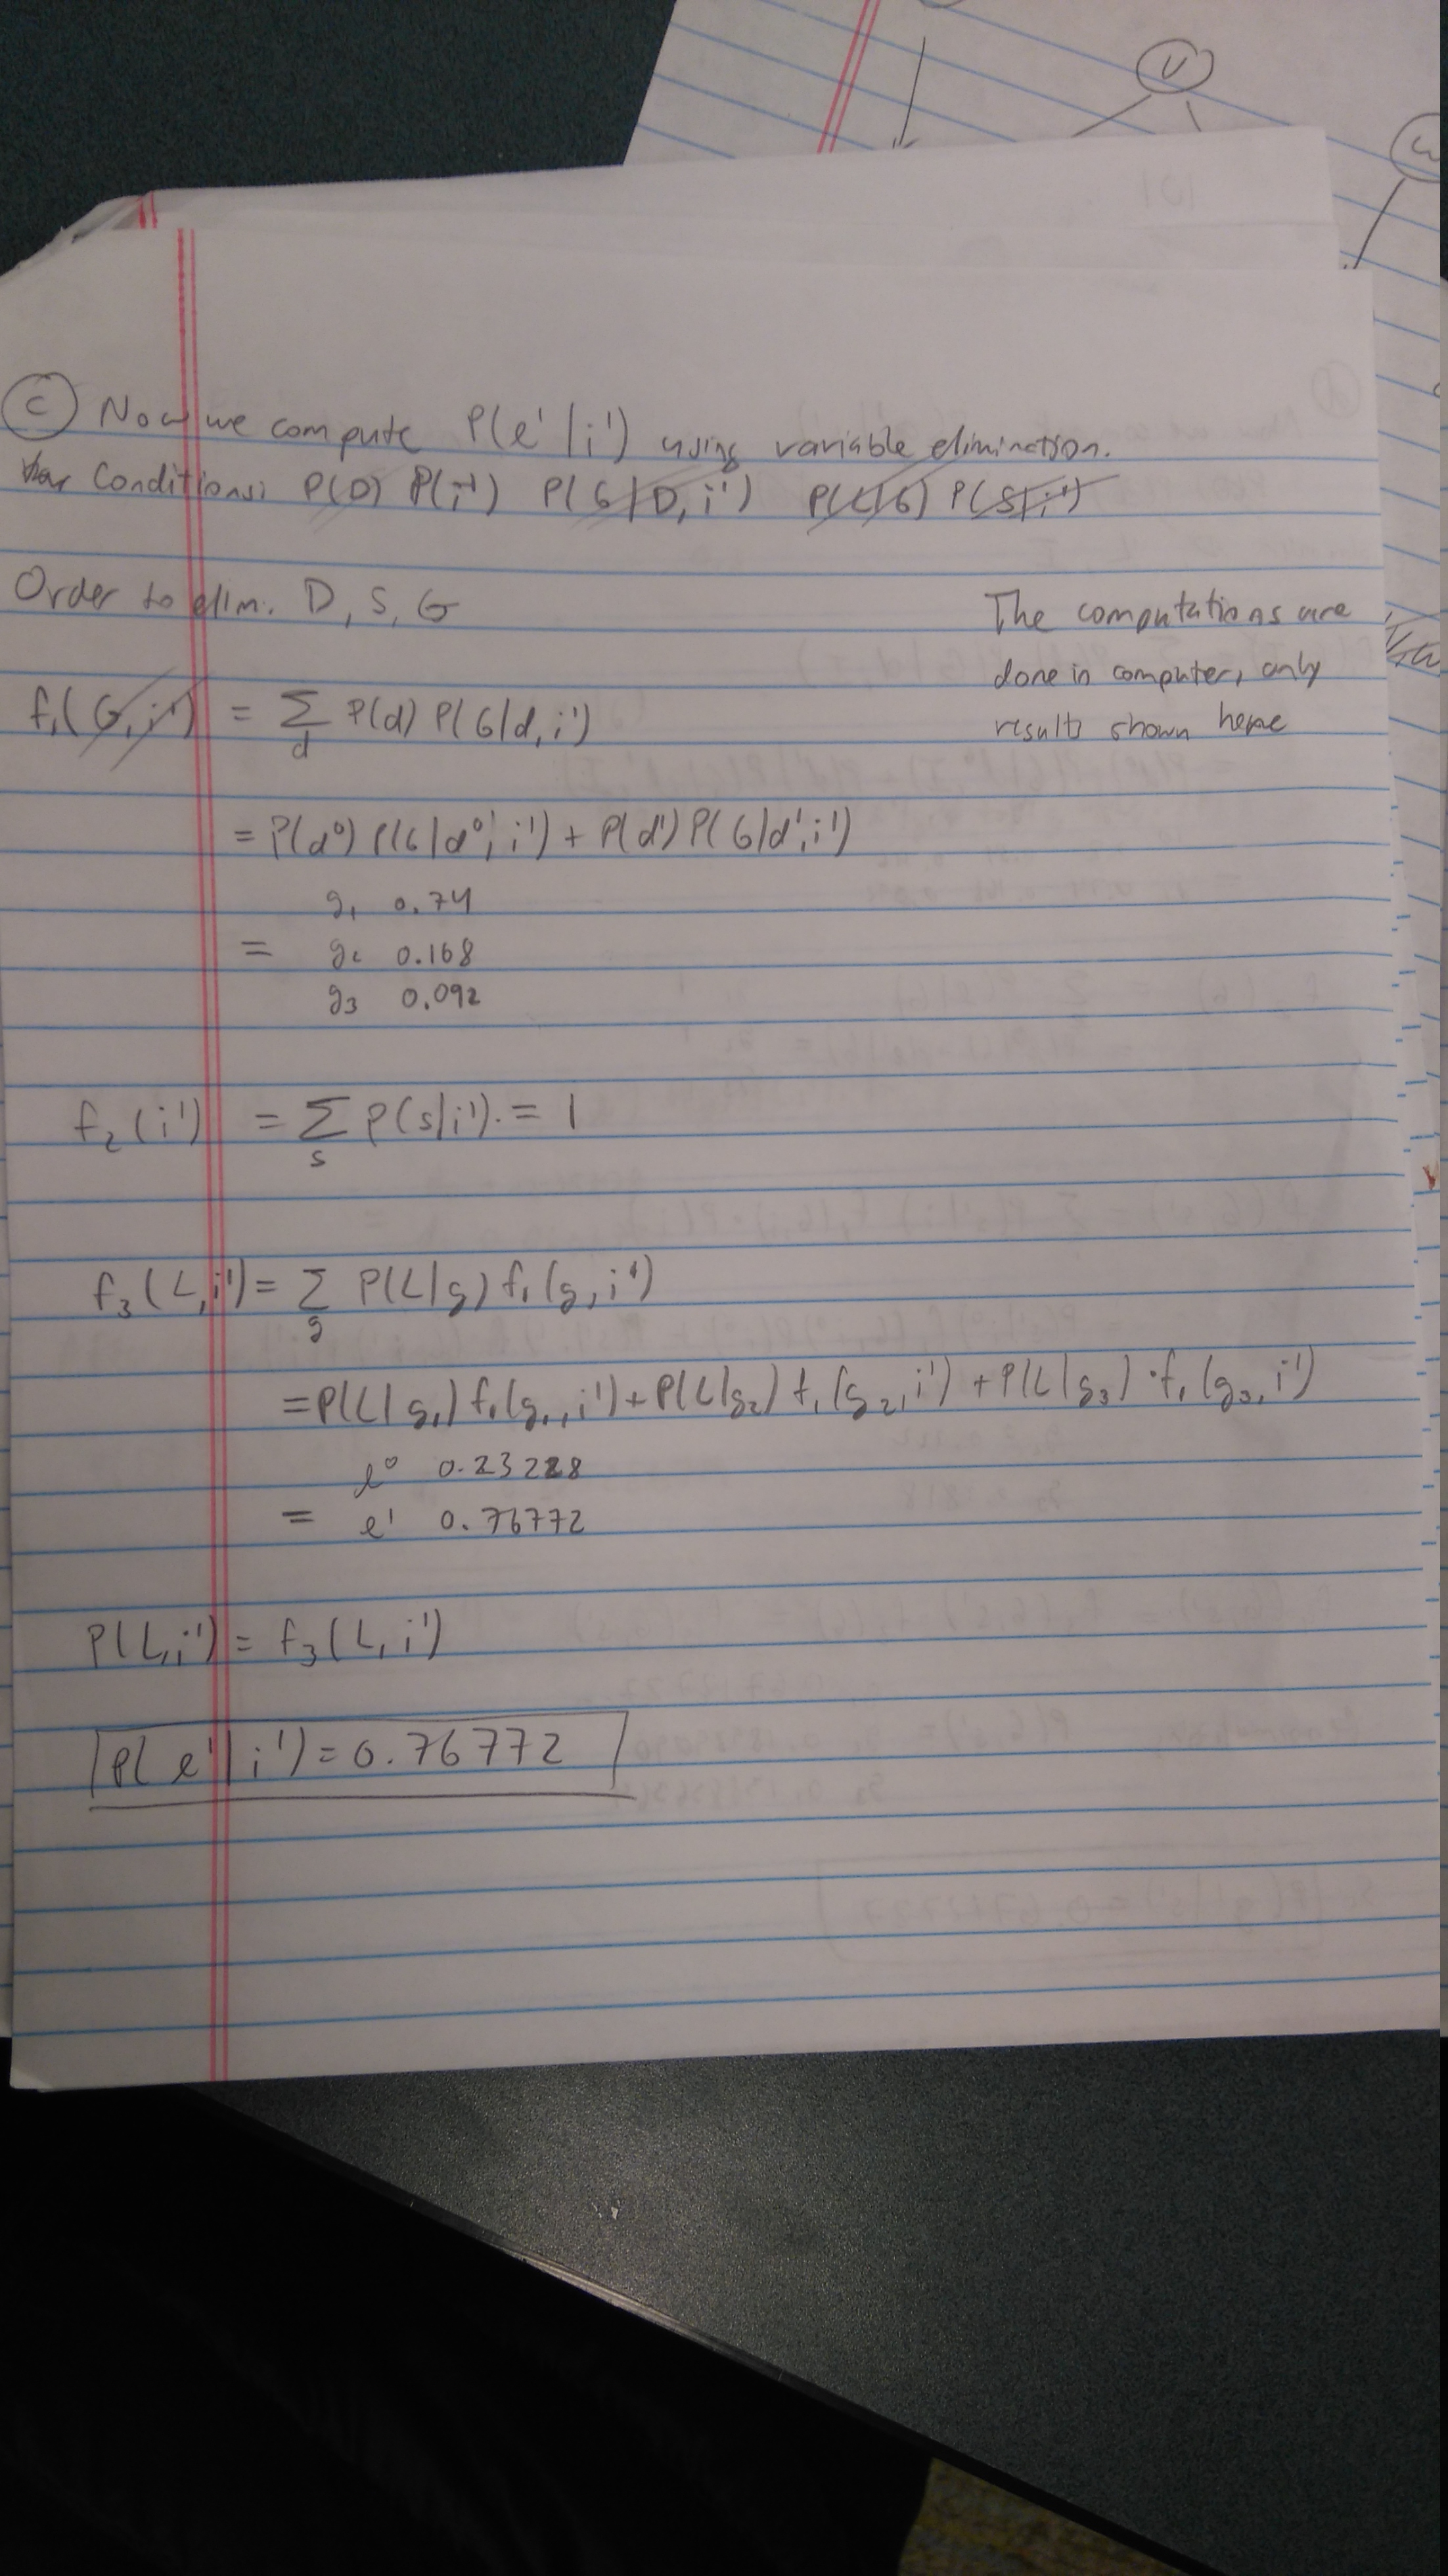 V
C Now we compute P(l¹|i¹) using variable elimination.
Conditions: P(D) P(i¹) P(G|D, i¹) P(L|G) P(S|i¹)
Order to elim. D, S, G
The computations are
done in computer, only
results shown here
f₁(G, i¹) = Σ_d P(d) P(G|d, i¹)
= P(d⁰) P(G|d⁰, i¹) + P(d¹) P(G|d¹, i¹)
g₁ 0.74
= g₂ 0.168
g₃ 0.092
f₂(i¹) = Σ_s P(s|i¹) = 1
f₃(L, i¹) = Σ_g P(L|g) f₁(g, i¹)
= P(L|g₁) f₁(g₁, i¹) + P(L|g₂) f₁(g₂, i¹) + P(L|g₃) · f₁(g₃, i¹)
l⁰ 0.23228
= l¹ 0.76772
P(L, i¹) = f₃(L, i¹)
P(l¹|i¹) = 0.76772